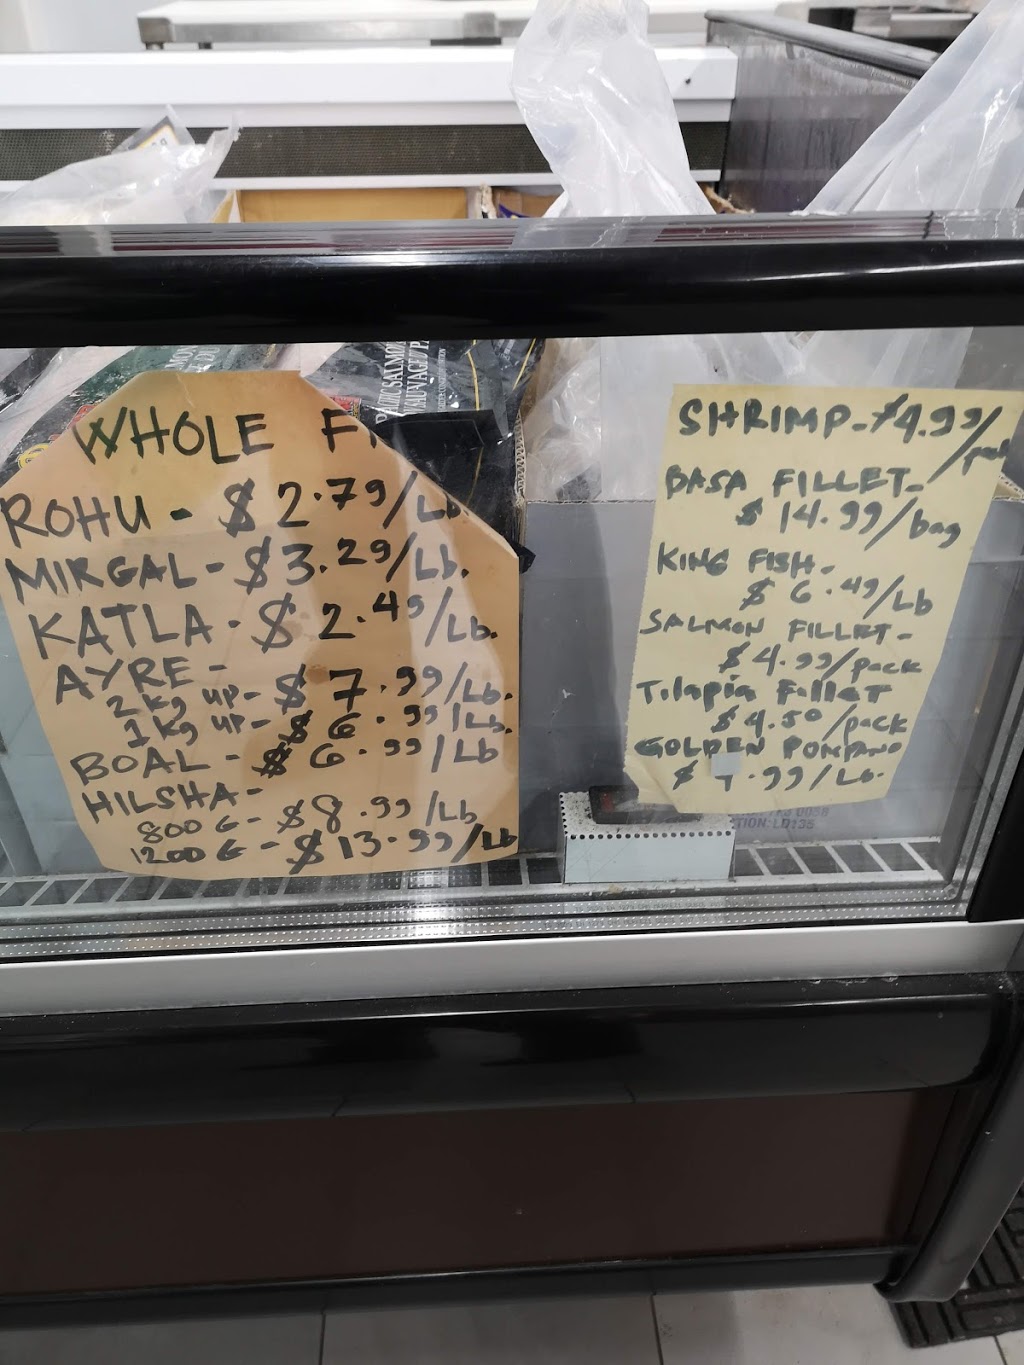 WHOLE
ROHU - $2.79/Lb
MIRGAL - $3.29/Lb.
KATLA - $2.49/Lb.
AYRE -
2 Kg UP - $7.99/Lb.
1 Kg UP - $6.99/Lb.
BOAL - $6.99/Lb
HILSHA -
800 G - $8.99/Lb
1200 G - $13.99/Lb
SHRIMP - $4.99/
BASA FILLET -
$14.99/bag
KING FISH -
$6.49/Lb
SALMON FILLET -
$4.99/pack
Tilapia Fillet
$4.50/pack
GOLDEN POMPANO